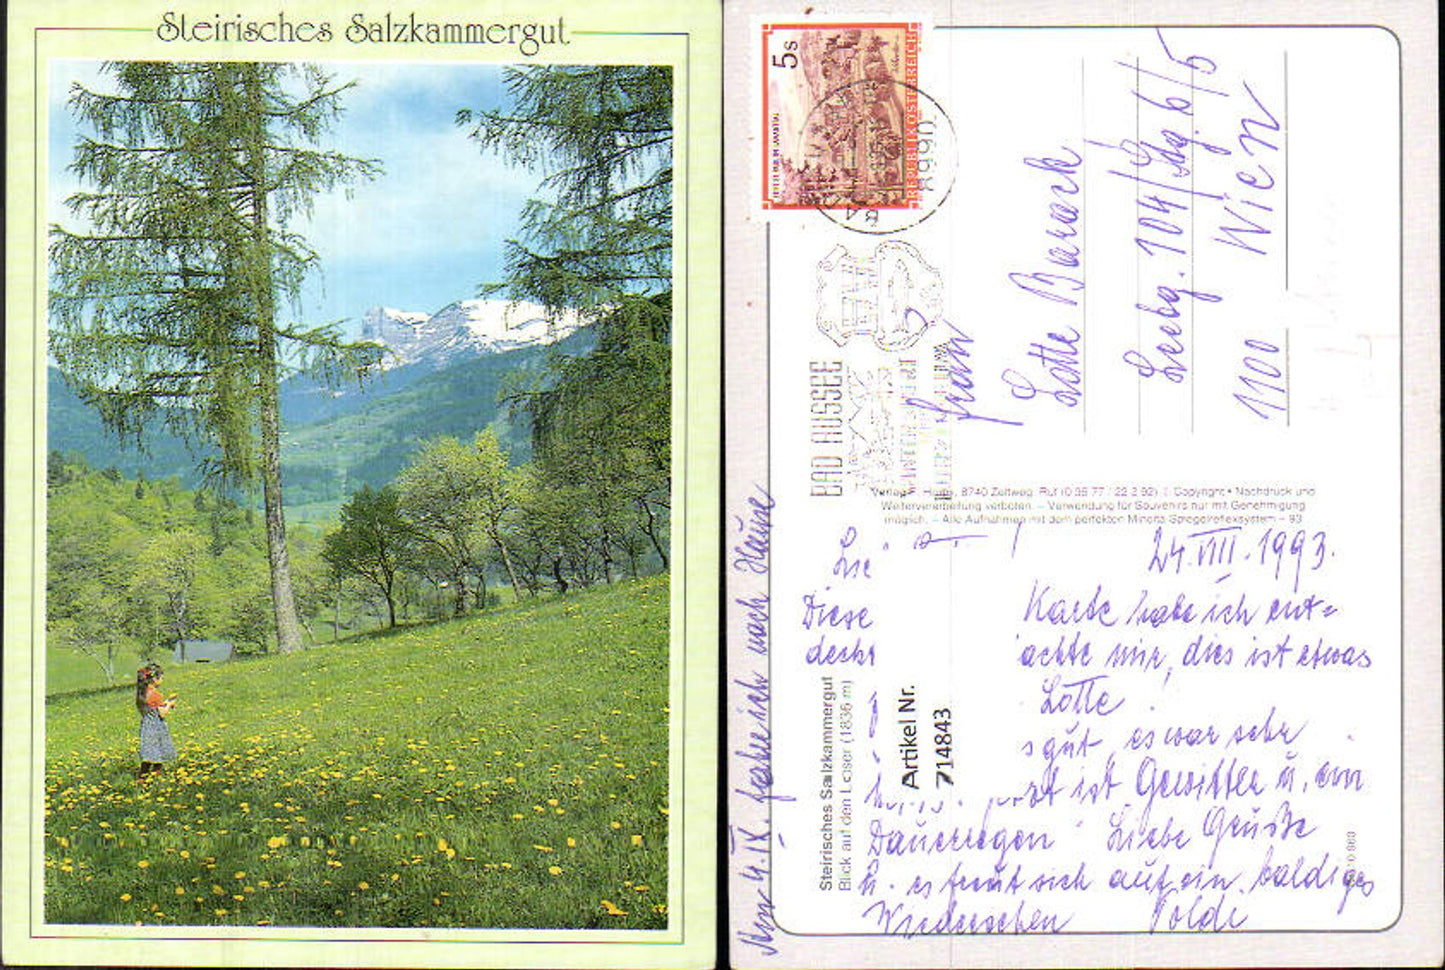 Steirisches Salzkammergut
5s
REPUBLIK ÖSTERREICH
8990
BAD AUSSEE
Frau
Lotte Barack
104
6/5
1100 Wien
Verlag F. 8740 Zeltweg Ruf (0 35 77 / 22 2 92) Copyright • Nachdruck und
Weiterverarbeitung verboten. – Verwendung für Souvenirs nur mit Genehmigung
möglich. – Alle Aufnahmen mit dem perfekten Minolta Spiegelreflexsystem – 93
24. VIII. 1993.
Diese Karte habe ich ent=
deckt achte mir, dies ist etwas
Lotte!
gut, es war sehr
ist Gewitter u. ein
Dauerregen Liebe Grüße
u. es freut sich auf ein baldiges
Wiedersehen Poldi
4. IX. fahre ich nach Hause
Steirisches Salzkammergut
Blick auf den Loser (1836 m)
Artikel Nr.
714843